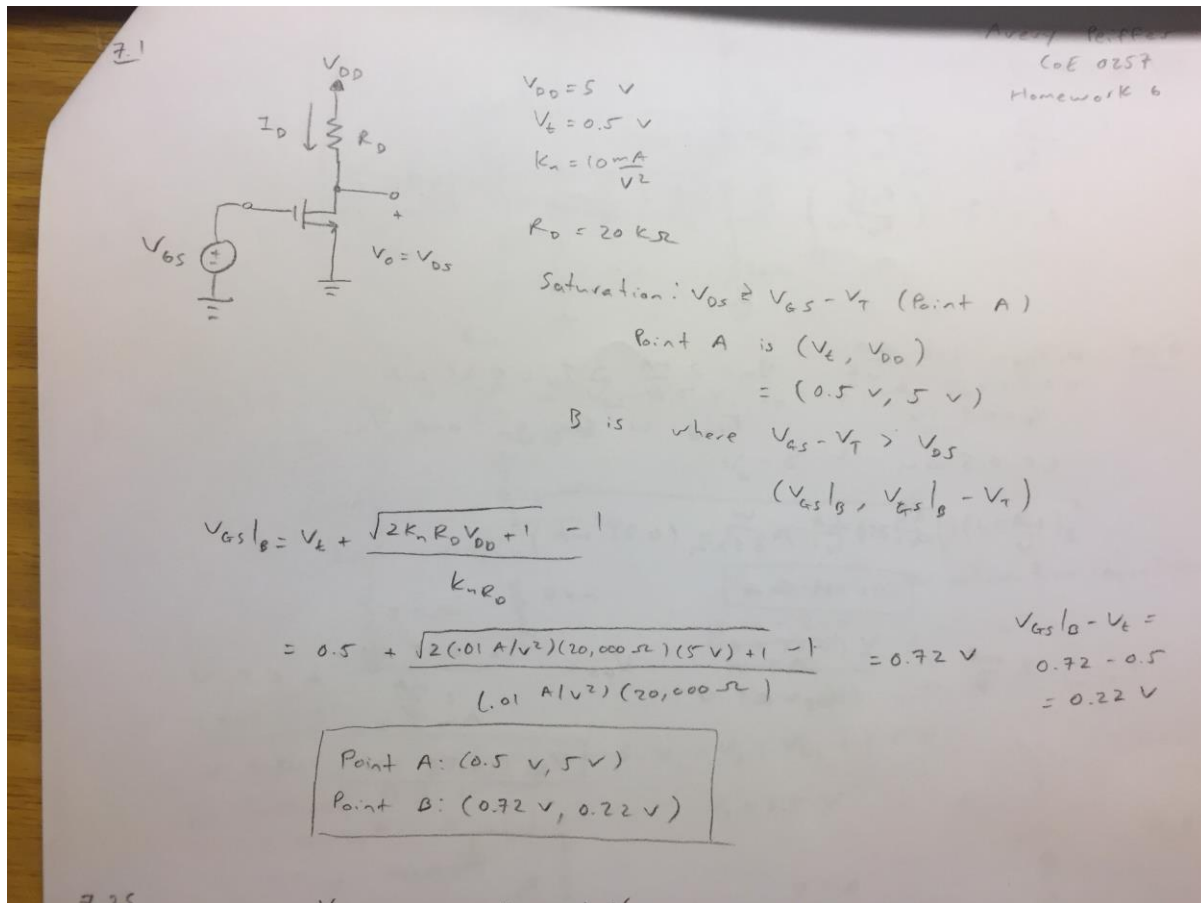 7.1
Avery Peiffer
CoE 0257
Homework 6
V_DD
I_D
R_D
V_GS
+
V_O = V_DS
V_DD = 5 V
V_t = 0.5 V
K_n = 10 mA/V²
R_D = 20 KΩ
Saturation: V_DS ≥ V_GS - V_T (Point A)
Point A is (V_t, V_DD)
= (0.5 V, 5 V)
B is where V_GS - V_T > V_DS
(V_GS|_B, V_GS|_B - V_T)
V_GS|_B = V_t + (√(2K_n R_D V_DD + 1) - 1) / (K_n R_D)
= 0.5 + (√(2(.01 A/V²)(20,000 Ω)(5 V) + 1) - 1) / ((.01 A/V²)(20,000 Ω)) = 0.72 V
V_GS|_B - V_t =
0.72 - 0.5
= 0.22 V
Point A: (0.5 V, 5 V)
Point B: (0.72 V, 0.22 V)